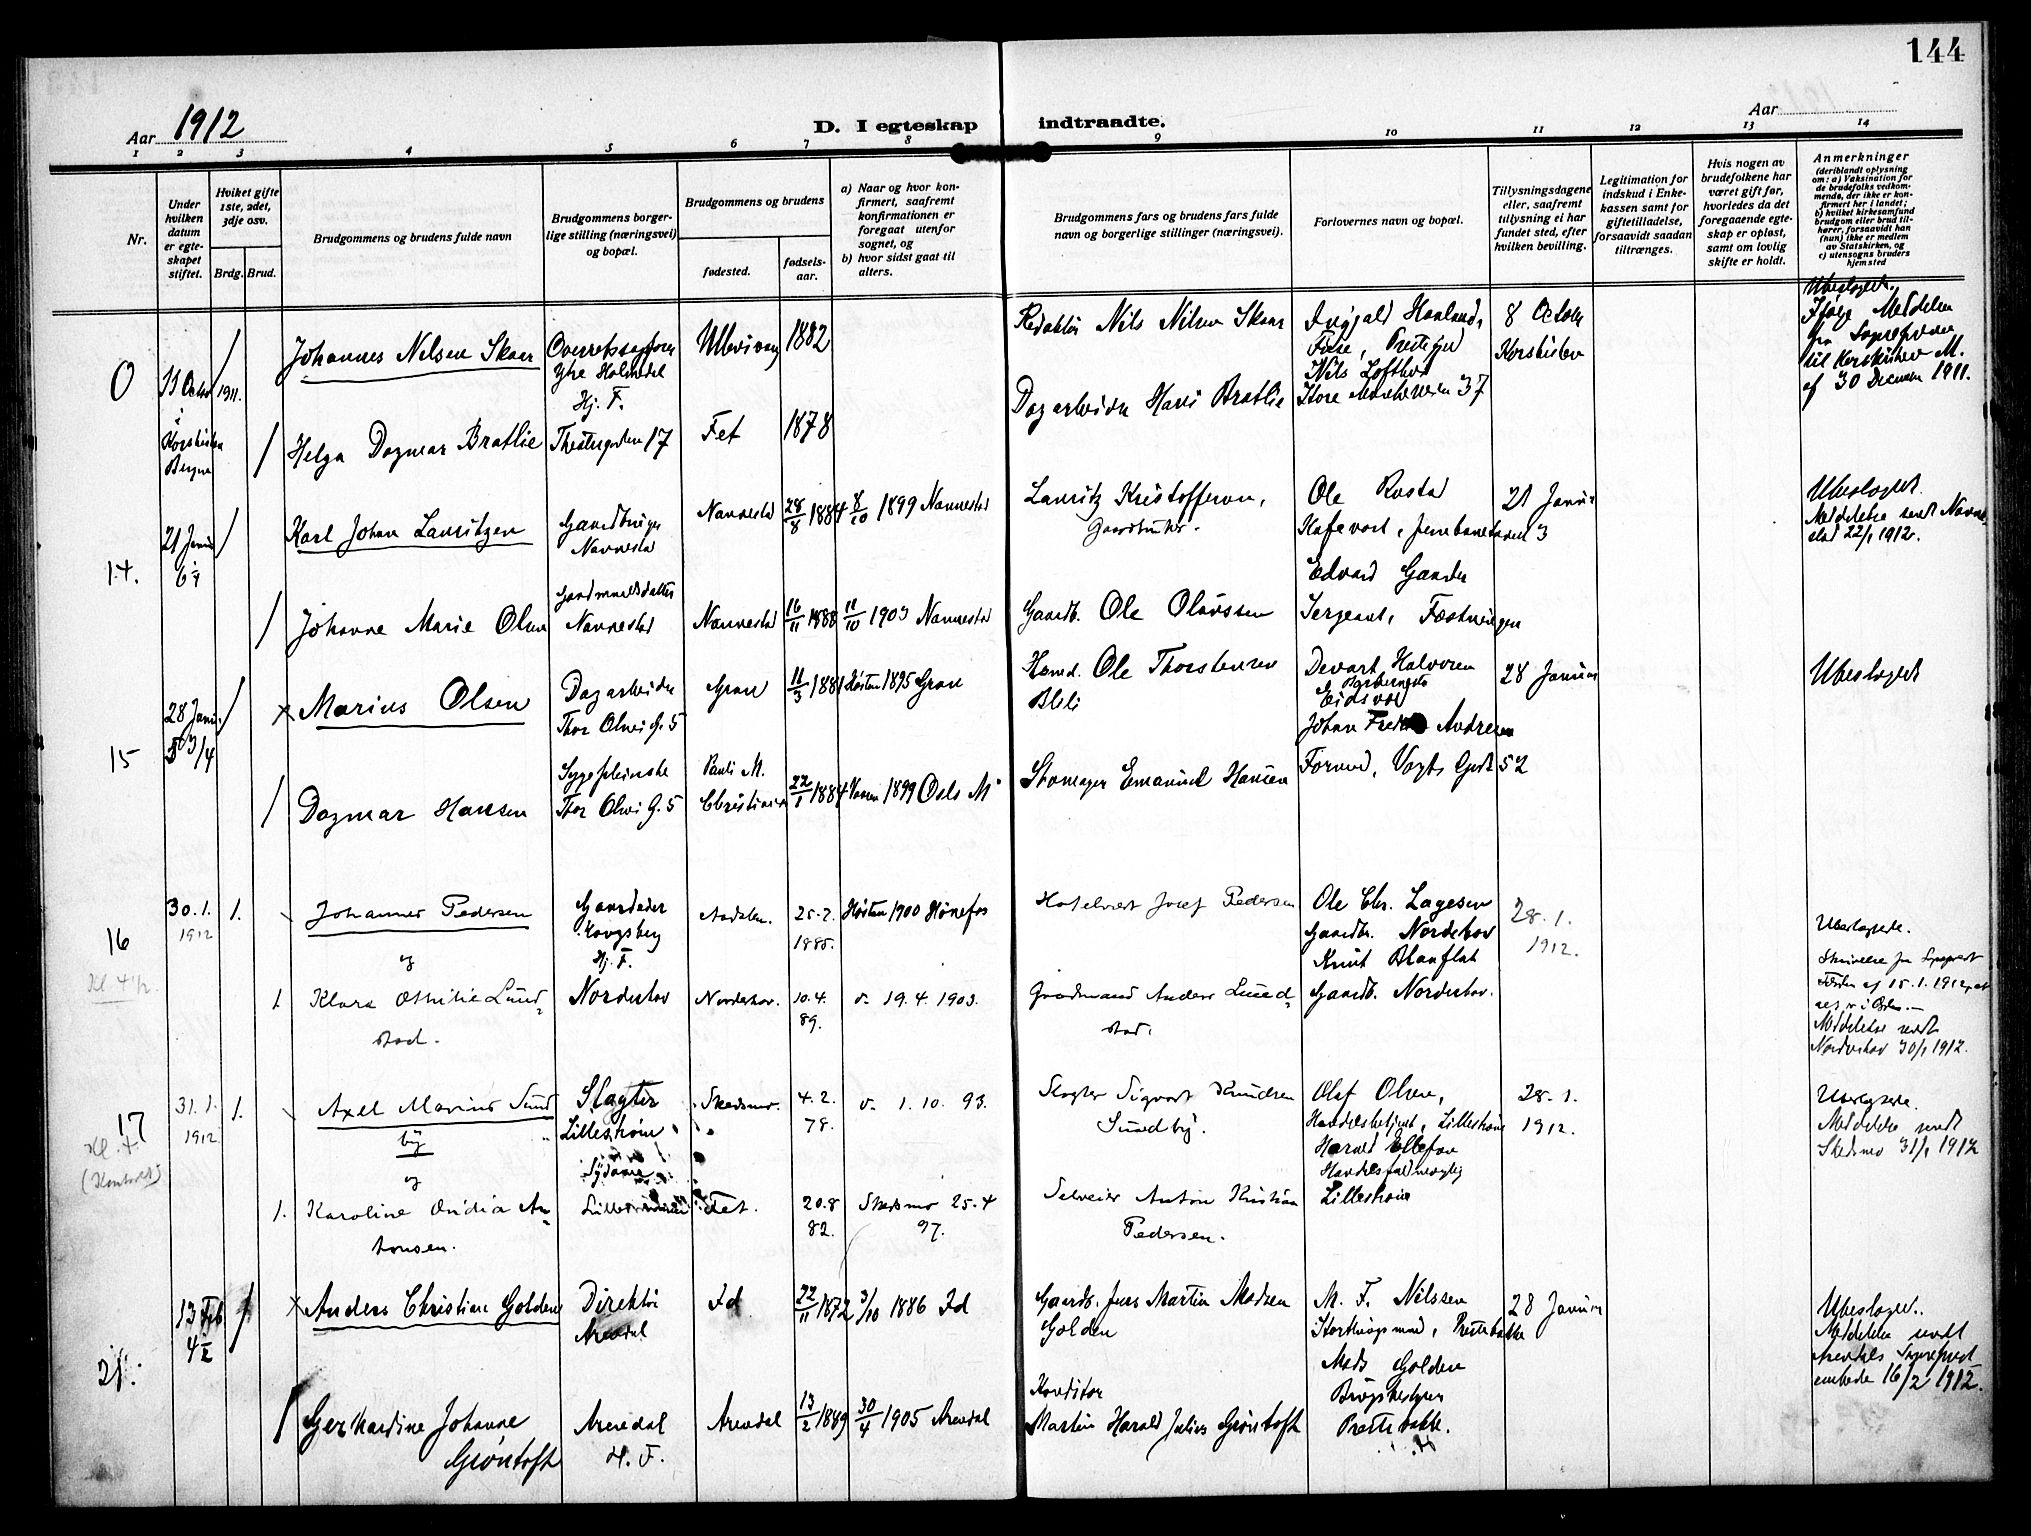 144
Aar 1912
D. I egteskap indtraadte.
Aar
1 2 3 4 5 6 7 8 9 10 11 12 13 14
Nr.
Under hvilken datum er egteskapet stiftet.
Hvilket gifte 1ste, 2det, 3dje osv.
Brdg. Brud.
Brudgommens og brudens fulde navn
Brudgommens borgerlige stilling (næringsvei) og bopæl.
Brudgommens og brudens
fødested.
fødselsaar.
a) Naar og hvor konfirmert, saafremt konfirmationen er foregaat utenfor sognet, og
b) hvor sidst gaat til alters.
Brudgommens fars og brudens fars fulde navn og borgerlige stillinger (næringsvei).
Forlovernes navn og bopæl.
Tillysningsdagene eller, saafremt tillysning ei har fundet sted, efter hvilken bevilling.
Legitimation for indskud i Enkekassen samt for giftetilladelse, forsaavidt saadan tiltrænges.
Hvis nogen av brudefolkene har været gift før, hvorledes da det foregaaende egteskap er opløst, samt om lovlig skifte er holdt.
Anmerkninger
(deriblandt oplysning om: a) Vaksination for de brudefolks vedkommende, der ikke er konfirmert her i landet; b) hvilket kirkesamfund brudgom eller brud tilhører, forsaavidt han (hun) ikke er medlem av Statskirken, og c) utensogns bruders hjemsted
0
1911.
Johannes Nilsen Skaar
Ytre Holmedal
Hj. F.
1882
Redaktør Nils Nilsen Skaar
Ingjald Haaland,
Nils Lofthus
8 October
Korskirken
Ubeslegtet.
Ifølge Meddelelse
fra Sognepresten
til Korskirken M.
af 30 December 1911.
Korskirken
Bergen
Helga Dagmar Bratlie
Theatergaten 17
Fet
1878
Dagarbeider Hans Bratlie
14.
21 Januar
6 1/4
Karl Johan Lauritzen
Gaardbruger
Nannestad
Nannestad
28/8 1884
8/10 1899 Nannestad
Lauritz Kristoffersen,
Gaardbruker.
Ole Rustad
Kafevert, Jernbanetorvet 3
21 Januar
Ubeslegtet.
Meddelelse sendt Nannestad 22/1 1912.
Johanne Marie Olsen
Gaardmandsdatter
Nannestad
Nannestad
16/11 1888
11/10 1903 Nannestad
Gaardb. Ole Olavssen
Edvard Gander
Sergeant, Fæstningen
15
28 Januar
Marius Olsen
Dagarbeider
Thor Olsens G. 5
Gran
11/3 1881
Høsten 1895 Gran
Husmd. Ole Thorstensen
Halvorsen
Eidsvold
28 Januar
Ubeslegtet
Dagmar Hansen
Sygepleierske
Thor Olsens G. 5
Pauli M.
Christiania
22/1 1884
Vaaren 1899 Oslo M
Skomager Emanuel Hansen
Johan Fredrik Andresen
Formand, Vogts Gade 52
16
Kl 4 1/2
30.1.
1912
1.
Johannes Pedersen
og
Gaardeier
Kongsberg
Hj. F.
Aadalen.
25-2.
1885.
Høsten 1900 Hønefos
Hotelvert Josef Pedersen
Ole Chr. Lagesen
Gaardbr. Norderhov
Knut Blaaflat
Gaardb. Norderhov.
28.1.
1912.
Ubeslegtede.
Meddelelse sendt
Norderhov 30/1 1912.
1
Klara Othilie Lundstad.
Norderhov
Norderhov.
10.4.
89.
19.4. 1903.
Gaardmand Anders Lundstad.
17
Kl. 4.
(Kontoret)
31.1.
1912
1.
Axel Marius Sundby
og
Slagter
Lillestrøm
Skedsmo.
4.2.
78.
1.10.93.
Slagter Sigvart Knudsen
Sundby.
Olaf Olsen,
Handelsbetjent, Lillestrøm
Harald Ellefsen
Handelsfuldmægtig
Lillestrøm
28.1.
1912.
Ubeslegtede.
Meddelelse sendt
Skedsmo 31/1 1912
1.
Karoline Ovidia Antonsen.
Sydame
Lillestrøm
Fet.
20.8
82.
Skedsmo 25.4
97.
Selveier Anton Kristian
Pedersen.
21.
13 Feb
4 1/2
Anders Christian Golden
Direktør
Arendal
Id
22/11 1872
3/10 1886 Id
Gaardb. Jens Martin Madsen
Golden
M. F. Nilssen
Storthingsmand, Prestebakke
Mads Golden
Brugsbestyrer
Prestebakke.
28 Januar
Ubeslegtet.
Meddelelse sendt
Arendals Sogneprestembede 16/2 1912.
Gerhardine Johanne
Grøntoft
Arendal
H. F.
Arendal
13/2 1889
30/4 1905 Arendal
Konditor
Martin Harald Julius Grøntoft